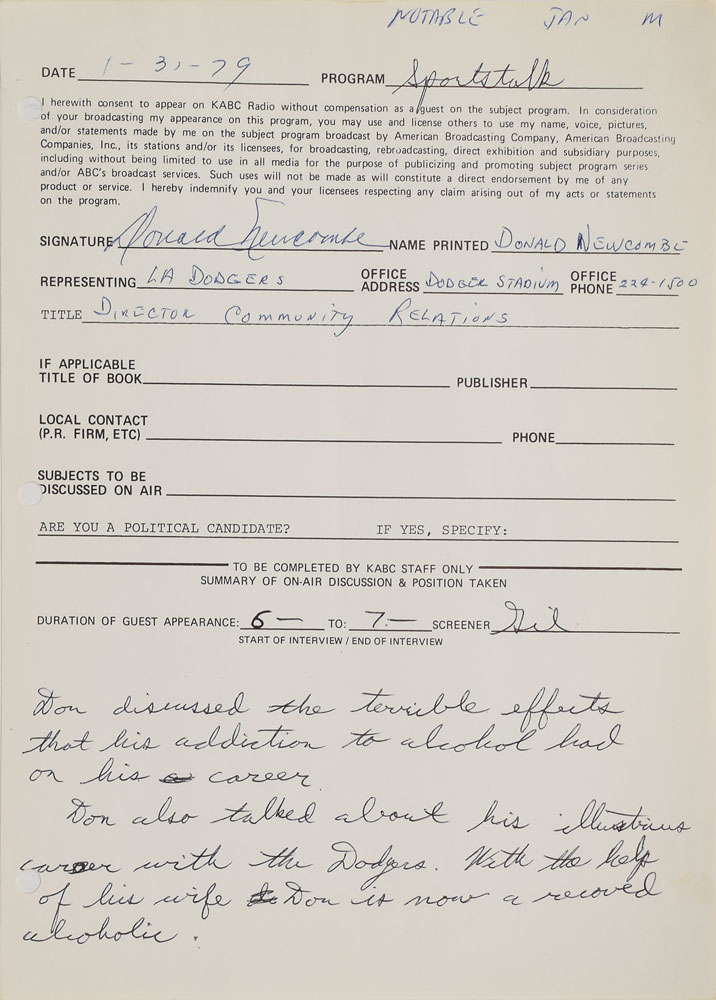 NOTABLE JAN M
DATE 1-31-79 PROGRAM Sportstalk
I herewith consent to appear on KABC Radio without compensation as a guest on the subject program. In consideration
of your broadcasting my appearance on this program, you may use and license others to use my name, voice, pictures,
and/or statements made by me on the subject program broadcast by American Broadcasting Company, American Broadcasting
Companies, Inc., its stations and/or its licensees, for broadcasting, rebroadcasting, direct exhibition and subsidiary purposes,
including without being limited to use in all media for the purpose of publicizing and promoting subject program series
and/or ABC's broadcast services. Such uses will not be made as will constitute a direct endorsement by me of any
product or service. I hereby indemnify you and your licensees respecting any claim arising out of my acts or statements
on the program.
SIGNATURE Donald Newcombe NAME PRINTED DONALD NEWCOMBE
REPRESENTING LA DODGERS OFFICE ADDRESS DODGER STADIUM OFFICE PHONE 224-1500
TITLE DIRECTOR COMMUNITY RELATIONS
IF APPLICABLE
TITLE OF BOOK PUBLISHER
LOCAL CONTACT
(P.R. FIRM, ETC) PHONE
SUBJECTS TO BE
DISCUSSED ON AIR
ARE YOU A POLITICAL CANDIDATE? IF YES, SPECIFY:
TO BE COMPLETED BY KABC STAFF ONLY
SUMMARY OF ON-AIR DISCUSSION & POSITION TAKEN
DURATION OF GUEST APPEARANCE: 6— TO: 7:— SCREENER Gil
START OF INTERVIEW / END OF INTERVIEW
Don discussed the terrible effects
that his addiction to alcohol had
on his career
Don also talked about his illustrious
career with the Dodgers. With the help
of his wife Don is now a recoved
alcoholic.